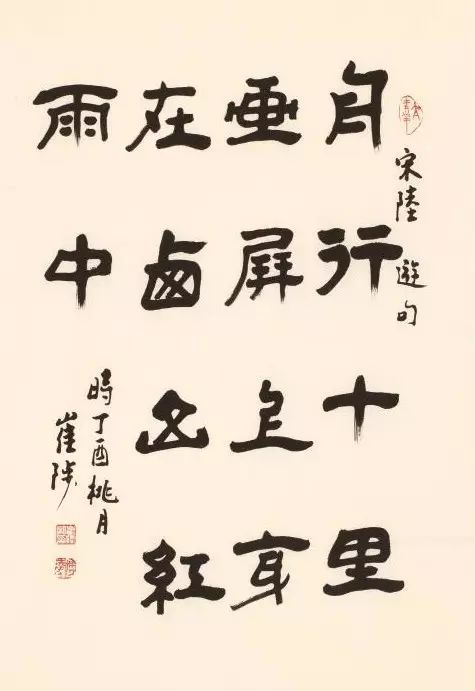 宋陸遊句
舟行十里
画屏上身
在西山紅
雨中
時丁酉桃月
崔陟